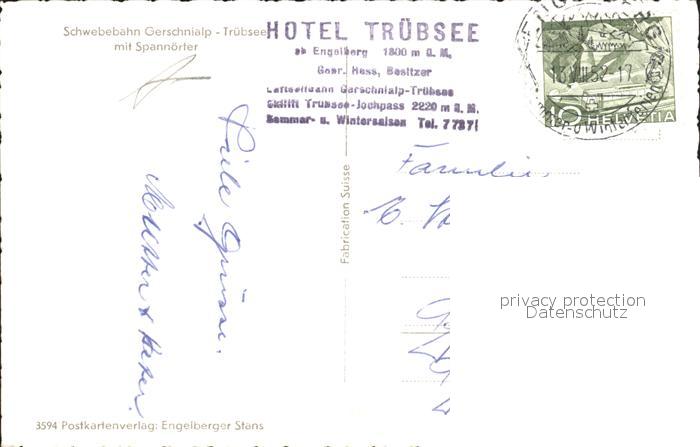 Schwebebahn Gerschnialp - Trübsee
mit Spannörter
HOTEL TRÜBSEE
ob Engelberg 1800 m ü. M.
Gebr. Hess, Besitzer
Luftseilbahn Gerschnialp-Trübsee
Skilift Trübsee-Jochpass 2220 m ü. M.
Sommer- u. Wintersaison Tel. 77371
HELVETIA
Viele Grüsse.
Mutter &
Fabrication Suisse
Familie
privacy protection
Datenschutz
3594 Postkartenverlag: Engelberger Stans